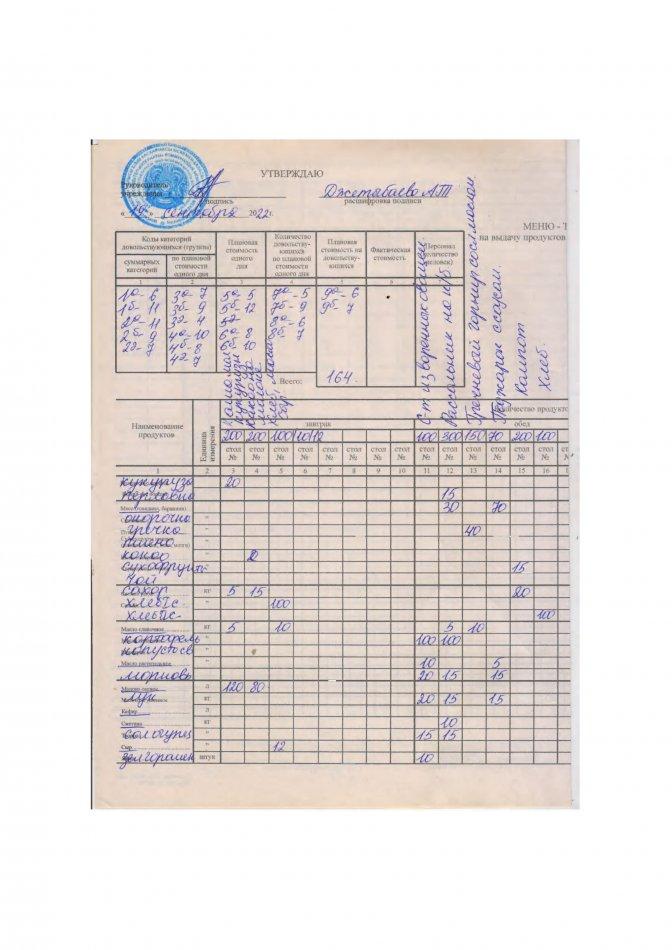 УТВЕРЖДАЮ
Руководитель
учреждения
подпись
Джетыбаева А.Т.
расшифровка подписи
« 19 » сентября 2022 г.
МЕНЮ - Т
на выдачу продуктов
Коды категорий довольствующихся (группы)
суммарных категорий
по плановой стоимости одного дня
Плановая стоимость одного дня
Количество довольствующихся по плановой стоимости одного дня
Плановая стоимость на довольствующихся
Фактическая стоимость
Персонал (количество человек)
1 2 3 4 5 6
1а-6 3а-7 5а-5 7а-5 9а-6
1б-11 3б-9 5б-12 7б-9 9б-7
2а-11 3г-4 8а-6
2б-9 4а-10 6а-8 8б-7
2г-7 4б-8 6б-10
4г-7
Всего: 164.
С-т из варенных овощей.
Рассольник на м/б.
Гречневый гарнир со сл. маслом.
Поджарка с соусом.
Компот
Хлеб.
Наименование продуктов
Единица измерения
Количество продукто
завтрак
обед
200 200 100/10/12 100 300 150 70 200 100
стол № стол № стол № стол № стол № стол № стол № стол № стол № стол № стол № стол № стол № стол №
1 2 3 4 5 6 7 8 9 10 11 12 13 14 15 16
кукуруза 20
перловка 15
Мясо (говядина, баранина) " 30 70
окорочка "
гречка " 40
пшено "
какао " 2
сухофрукты 15
чай
сахар кг 5 15 20
хлеб 1с. " 100
хлеб 1с. " 100
Масло сливочное " 5 10 5 10
картофель " 100 100
капуста св "
Масло растительное " 10 5
морковь 20 15 15
Молоко свежее л 120 80
лук кг 20 15 15
Кефир л
Сметана кг 10
сол огурец " 15 15
Сыр " 12
зел горошек штук 10